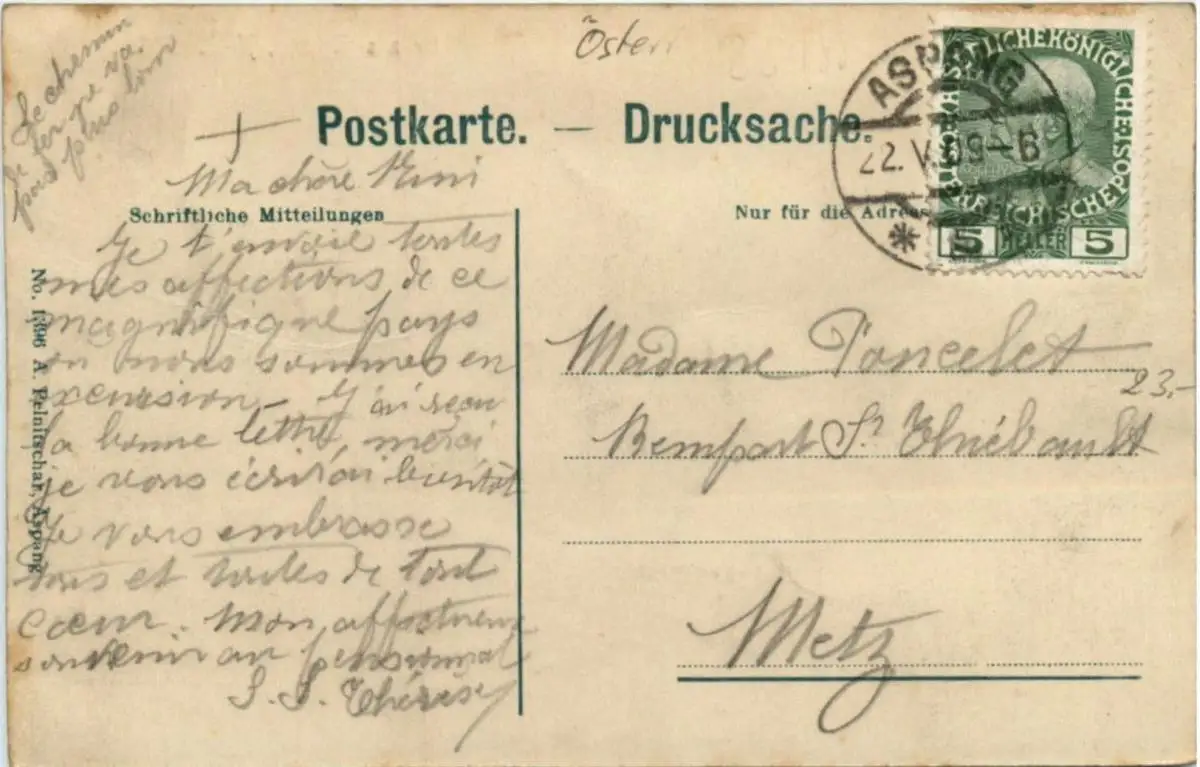 Le chemin
de fer ne va
pas plus loin
Öster
ASPANG
22. V. 09—6
KAISERLICHE KÖNIGLICHE
ÖSTERREICHISCHE POST
5 HELLER 5
Postkarte. — Drucksache.
Ma chère Mimi
Schriftliche Mitteilungen
Nur für die Adresse
Je t'envoie toutes
mes affections de ce
magnifique pays
où nous sommes en
excursion – J'ai reçu
ta bonne lettre, merci
je vous écrirai bientôt
Je vous embrasse
tous et toutes de tout
cœur. Mon affectueux
souvenir au pensionnat
S. S. Thérèse
No. 1396 A. Pelnitschar, Aspang
Madame Poncelet
23.-
Rempart St Thiébault
Metz